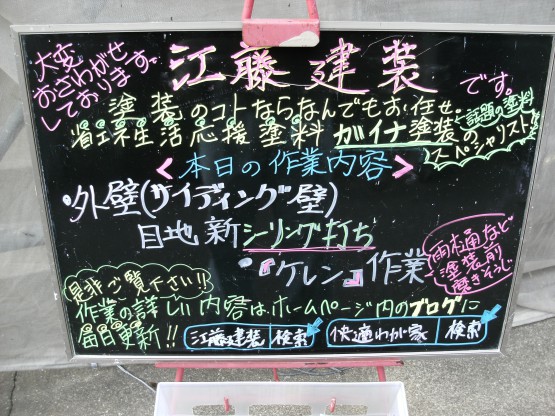 大変
おさわがせ
しております。
江藤建装
です。
塗装のコトならなんでもお任せ
←話題の塗料
省エネ生活応援塗料 ガイナ塗装の
スペシャリスト!!
<本日の作業内容>
・外壁(サイディング壁)
目地 新シーリング打ち
・『ケレン』作業
雨樋など
塗装前
磨きそうじ
是非ご覧下さい!!
作業の詳しい内容は、ホームページ内のブログに
毎日更新!!
江藤建装 検索
快適わが家 検索